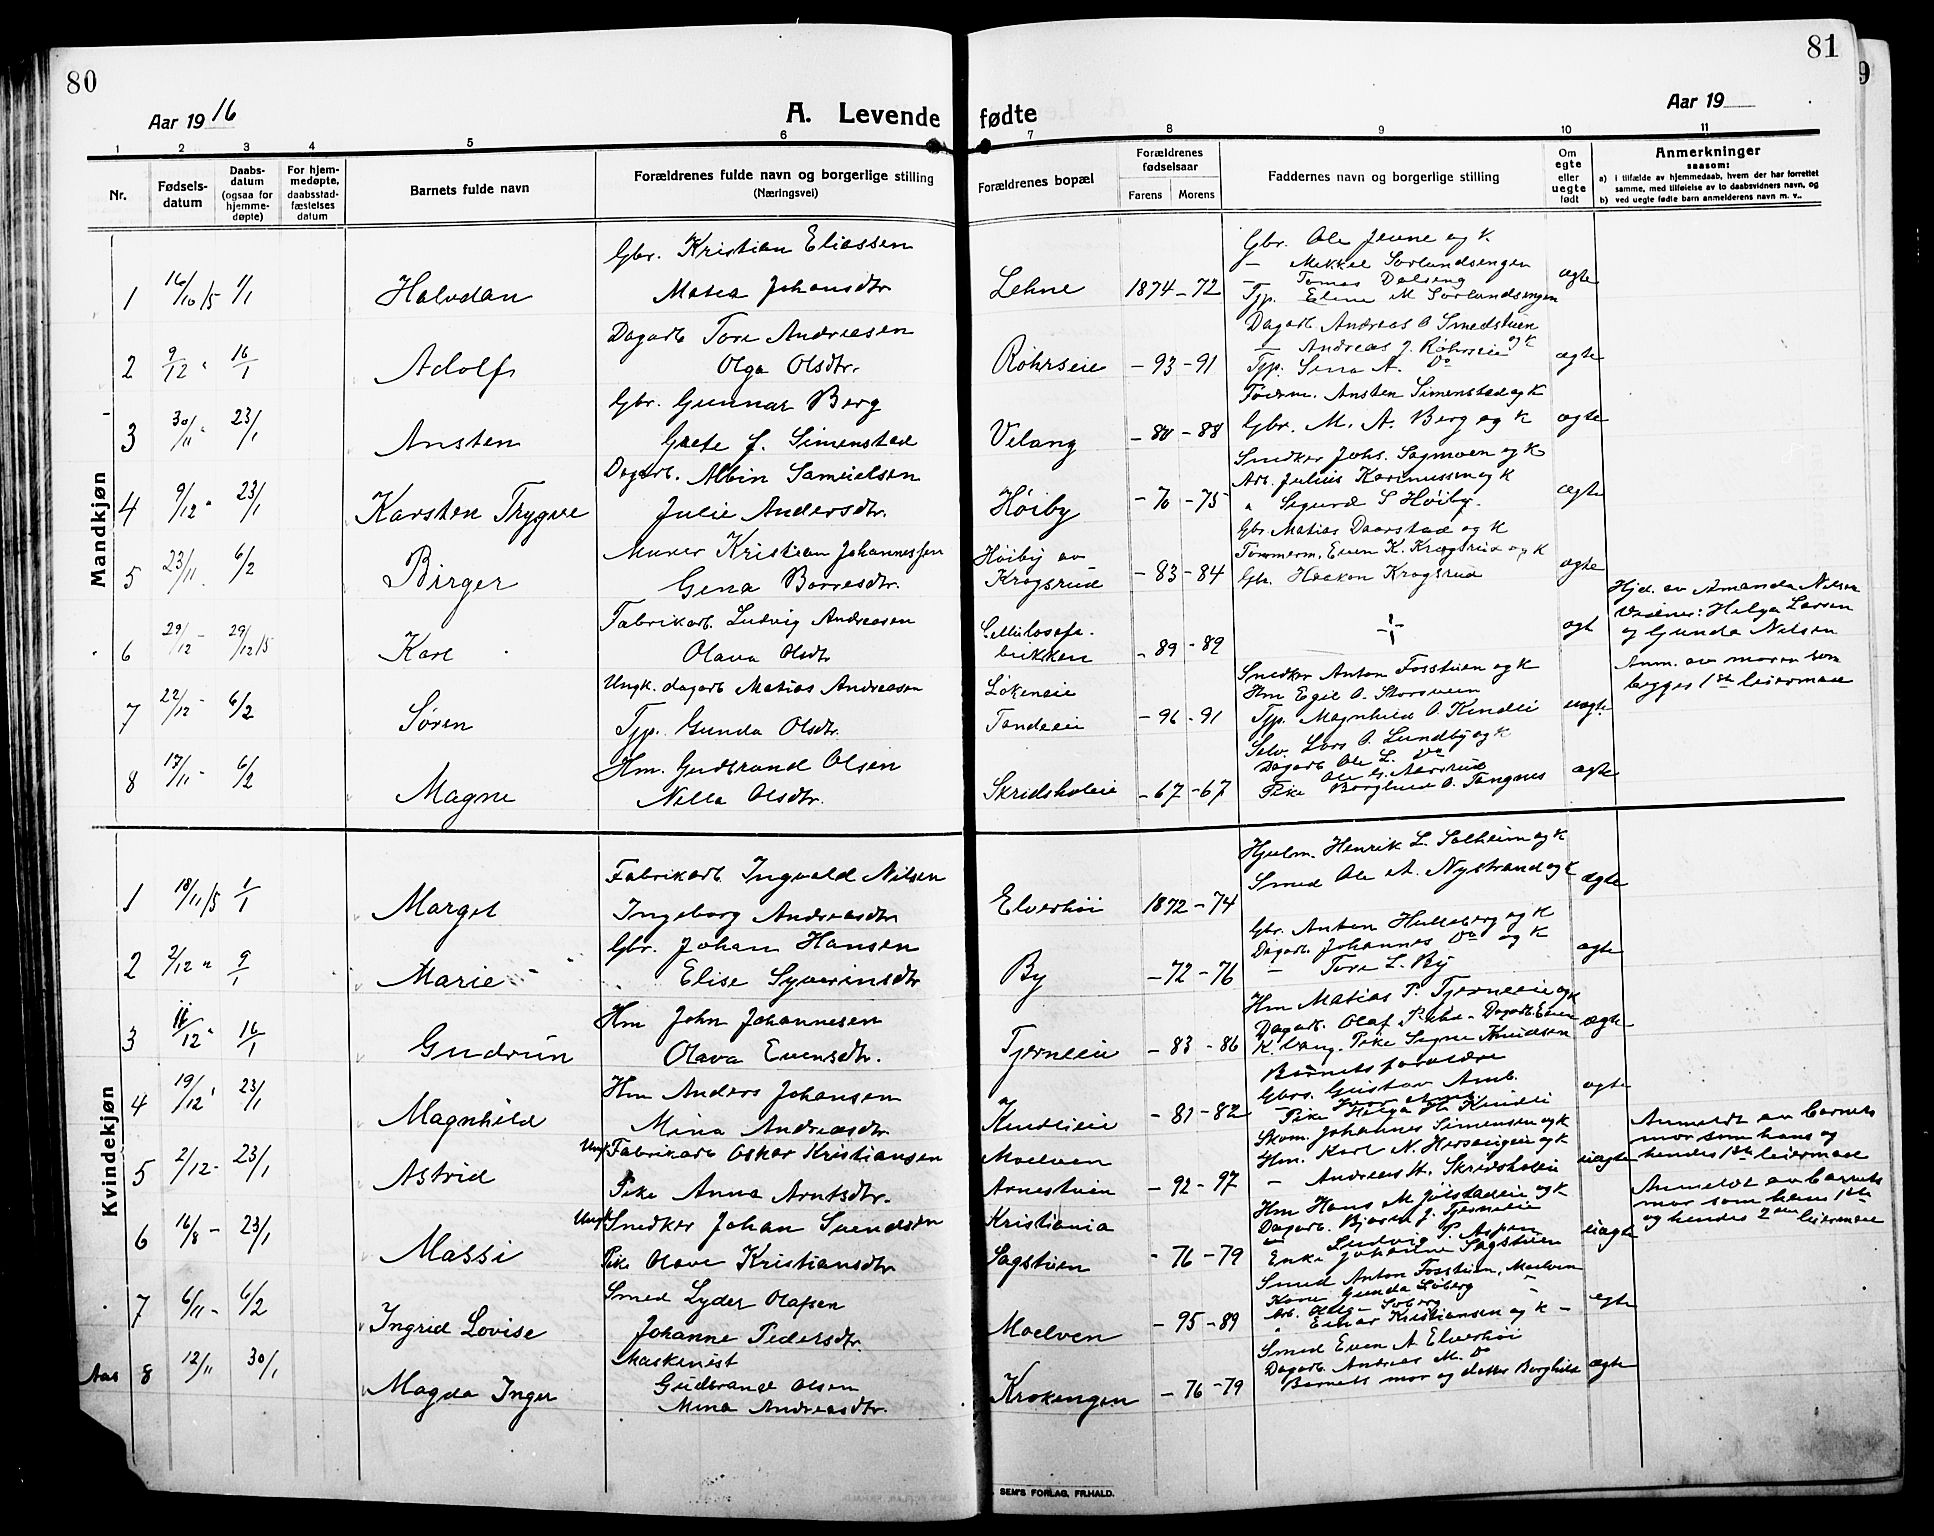 80
Aar 1916
A. Levende
1 2 3 4 5 6
Nr.
Fødsels-
datum
Daabs-
datum
(ogsaa for
hjemme-
døpte)
For hjem-
medøpte,
daabsstad-
fæstelses
datum
Barnets fulde navn
Forældrenes fulde navn og borgerlige stilling
(Næringsvei)
Mandkjøn
Gbr. Kristian Eliassen
1 16/10 15 1/1 Halvdan Matea Johansdtr
Dagarb. Tore Andreasen
2 9/12 " 16/1 Adolf Olga Olsdtr.
Gbr. Gunnar Berg
3 30/11 " 23/1 Ansten Grete J. Simenstad
Dagarb. Albin Samuelsen
4 9/12 " 23/1 Karsten Trygve Julie Andersdtr.
Murer Kristian Johannessen
5 23/11 6/2 Birger Gena Borresdtr.
Fabrikarb. Ludvig Andreasen
6 29/12 - 29/12 15 Kare Olava Olsdtr
Ungk. dagarb Matias Andreasen
7 22/12 - 6/2 Søren Tjp. Gunda Olsdtr.
Hm. Gudbrand Olsen
8 17/11 - 6/2 Magne Nella Olsdtr.
Kvindekjøn
Fabrikarb. Ingvald Nilsen
1 18/11 15 1/1 Margit Ingeborg Andreasdtr
Gbr. Johan Hansen
2 2/12 " 9/1 Marie Elise Syverinsdtr
Hm John Johannesen
3 11/12 " 16/1 Gudrun Olava Evensdtr.
Hm Anders Johansen
4 19/12 " 23/1 Magnhild Mina Andreasdtr
Ungk Fabrikarb Oskar Kristiansen
5 2/12 - 23/1 Astrid Pike Anna Arntsdtr.
Ungk Snedker Johan Svendsen
6 16/8 - 23/1 Massi Pike Olave Kristiansdtr
Smed Lyder Olafsen
7 6/11 - 6/2 Ingrid Lovise Johanne Pedersdtr.
Maskinist
Aas 8 12/11 30/1 Magda Inger Gudbrand Olsen
Mina Andreasdtr.
81
9
fødte
Aar 19
7 8 9 10 11
Forældrenes bopæl
Forældrenes
fødselsaar
Farens Morens
Faddernes navn og borgerlige stilling
Om
egte
eller
uegte
født
Anmerkninger
saasom:
a) i tilfælde av hjemmedaab, hvem der har forrettet
samme, med tilføielse av to daabsvidners navn, og
b) ved uegte fødte barn anmelderens navn m. v..
Gbr. Ole Jevne og k.
— Mikkel Sorlundsengen
— Tomas Dalseng
Lehne 1874 - 72 Tjp. Eline M Sorlundsengen ægte
Dagarb. Andreas O Smedstuen
— Andreas J. Röhrseie og k
Röhrseie - 93 - 91 Tjp. Sina A. Do ægte
Føderm. Ansten Simenstad og k
Velang - 80 - 88 Gbr. M. A. Berg og k ægte
Snedker Johs. Sagmoen og k
Arb. Julius Rasmussen og k
Høiby - 70 - 75 " Sigurd S Høiby. ægte
Gbr Matias Daarstad og k
Høiby av Tømmerm. Even K. Krogsrud og k
Krogsrud - 83 - 84 Gbr. Haakon Krogsrud ægte
Cellulosefa-
brikken - 89 - 89 ÷ ægt
Hjd. av Amanda Nilsen
Vidner: Helga Larsen
og Gunda Nilsen
Snedker Anton Fosstuen og k
Løkeneie Hm Egil O. Storsveen
Tandeeie - 96 - 91 Tjp. Magnhild O. Kindli uægte.
Anm. av moren som
begges 1ste leiermaal
Selv. Lars O. Lundby og k
Dagarb Ole L. Do
Ole G. Aarsrud
Skridsholeie - 67 - 67 Pike Borghild O. Tangnes ægte
Hjulm. Henrik L. Solheim og k
Elverhøi 1872 - 74 Smed Ole A. Nystrand og k ægte
Gbr. Anton Hulleberg og k
Dagarb. Johannes Do og k
By - 72 - 76 — Tore L. By ægte
Hm Matias P. Tjerneeie og k
Dagarb. Olaf P. ibd - Dagarb. Even
Tjerneeie - 83 - 86 K. Vang. Pike Signe Knudsen ægte
Barnets forældre
Gbrs. Gustav Amb.
Kindlieie - 81 - 82 Pike Helga H. Kindli ægte
Skom. Johannes Simensen og k
Moelven Hm. Karl N. Hersveigen og k
Arnestuen - 92 - 97 — Andreas H. Skridsholeie uægte
Anmeldt av barnets
mor som hans og
hendes 1ste leiermaal
Hm Hans M Jølstadeie og k
Kristiania Dagarb. Bjarne J. Tjerneeie
— Ludvig P. Aspen
Sagstuen - 76 - 79 Enke Johanne Sagstuen uægte
Anmeldt av barnets
mor som hans 1ste
og hendes 2den leiermaal
Smed Anton Fosstuen, Moelven
Kone Gunda Soberg —
Arb. Olaf Soberg
Moelven - 95 - 89 " Einar Kristiansen og k - egte
Smed Even A Elverhøi
Dagarb. Andreas M. Do
Krokengen - 76 - 79 Barnets mor og datter Borghild ægte
SEM'S FORLAG, FR.HALD.